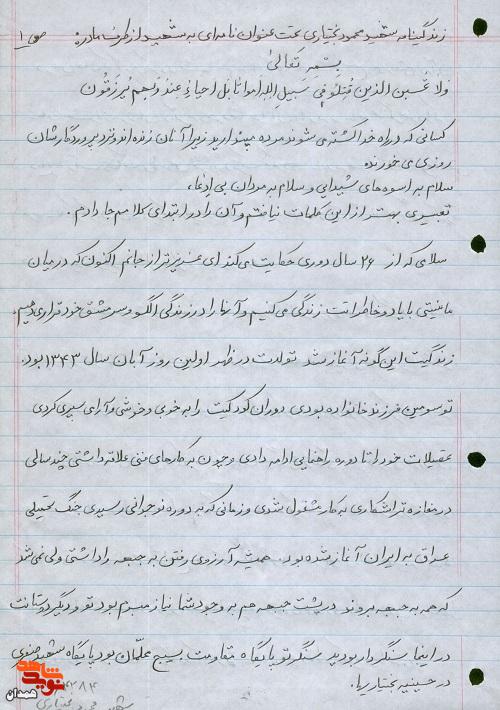 زندگینامه شهید محمود بختیاری تحت عنوان نامه‌ای به شهید از طرف مادر: ص ۱
بسمه تعالی
ولا تحسبن الذین قتلوا فی سبیل الله امواتا بل احیاء عند ربهم یرزقون
کسانی که در راه خدا کشته می شوند مرده مپندارید زیرا آنان زنده اند و نزد پروردگارشان
روزی می خورند
سلام به اسوه های شیدایی و سلام به مردان بی ادعا،
تعبیری بهتر از این کلمات نیافتم و آن را در ابتدای کلامم جا دادم.
سلامی که از ۲۶ سال دوری حکایت می کند ای عزیزتر از جانم اکنون که در میان
ما نیستی با یاد و خاطراتت زندگی می کنیم و آنها را در زندگی الگو و سرمشق خود قرار می دهیم.
زندگیت این گونه آغاز شد تولدت در ظهر اولین روز آبان سال ۱۳۴۳ بود.
تو سومین فرزند خانواده بودی دوران کودکیت را به خوبی و خوشی و آرامی سپری کردی
تحصیلات خود را تا دوره راهنمایی ادامه دادی و چون به کارهای فنی علاقه داشتی چند سالی
در مغازه تراشکاری به کار مشغول شدی و زمانی که به دوره نوجوانی رسیدی جنگ تحمیلی
عراق به ایران آغاز شده بود. همیشه آرزوی رفتن به جبهه را داشتی ولی نمی شد
که همه به جبهه بروند در پشت جبهه هم به وجود شما نیاز مبرم بود تو و دیگر دوستانت
در اینجا سنگردار بودید سنگر تو پایگاه مقاومت بسیج معلمان بود پایگاه شهید صنوبری
در حسینیه بختیاریها.
شاهد
نوید
همدان